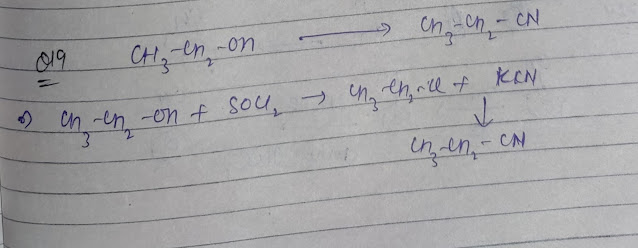 Q19 CH₃-CH₂-OH ⟶ CH₃-CH₂-CN
⇒) CH₃-CH₂-OH + SOCl₂ → CH₃-CH₂-Cl + KCN
↓
CH₃-CH₂-CN